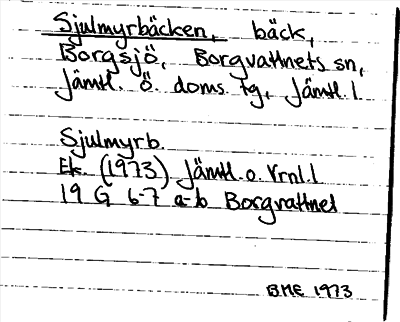 Sjulmyrbäcken, bäck,
Borgsjö, Borgvattnets sn,
Jämtl. ö. doms. tg, Jämtl. l.
Sjulmyrb.
Ek. (1973) Jämtl. o. Vrnl. l
19 G 6-7 a-b Borgvattnet
BME 1973